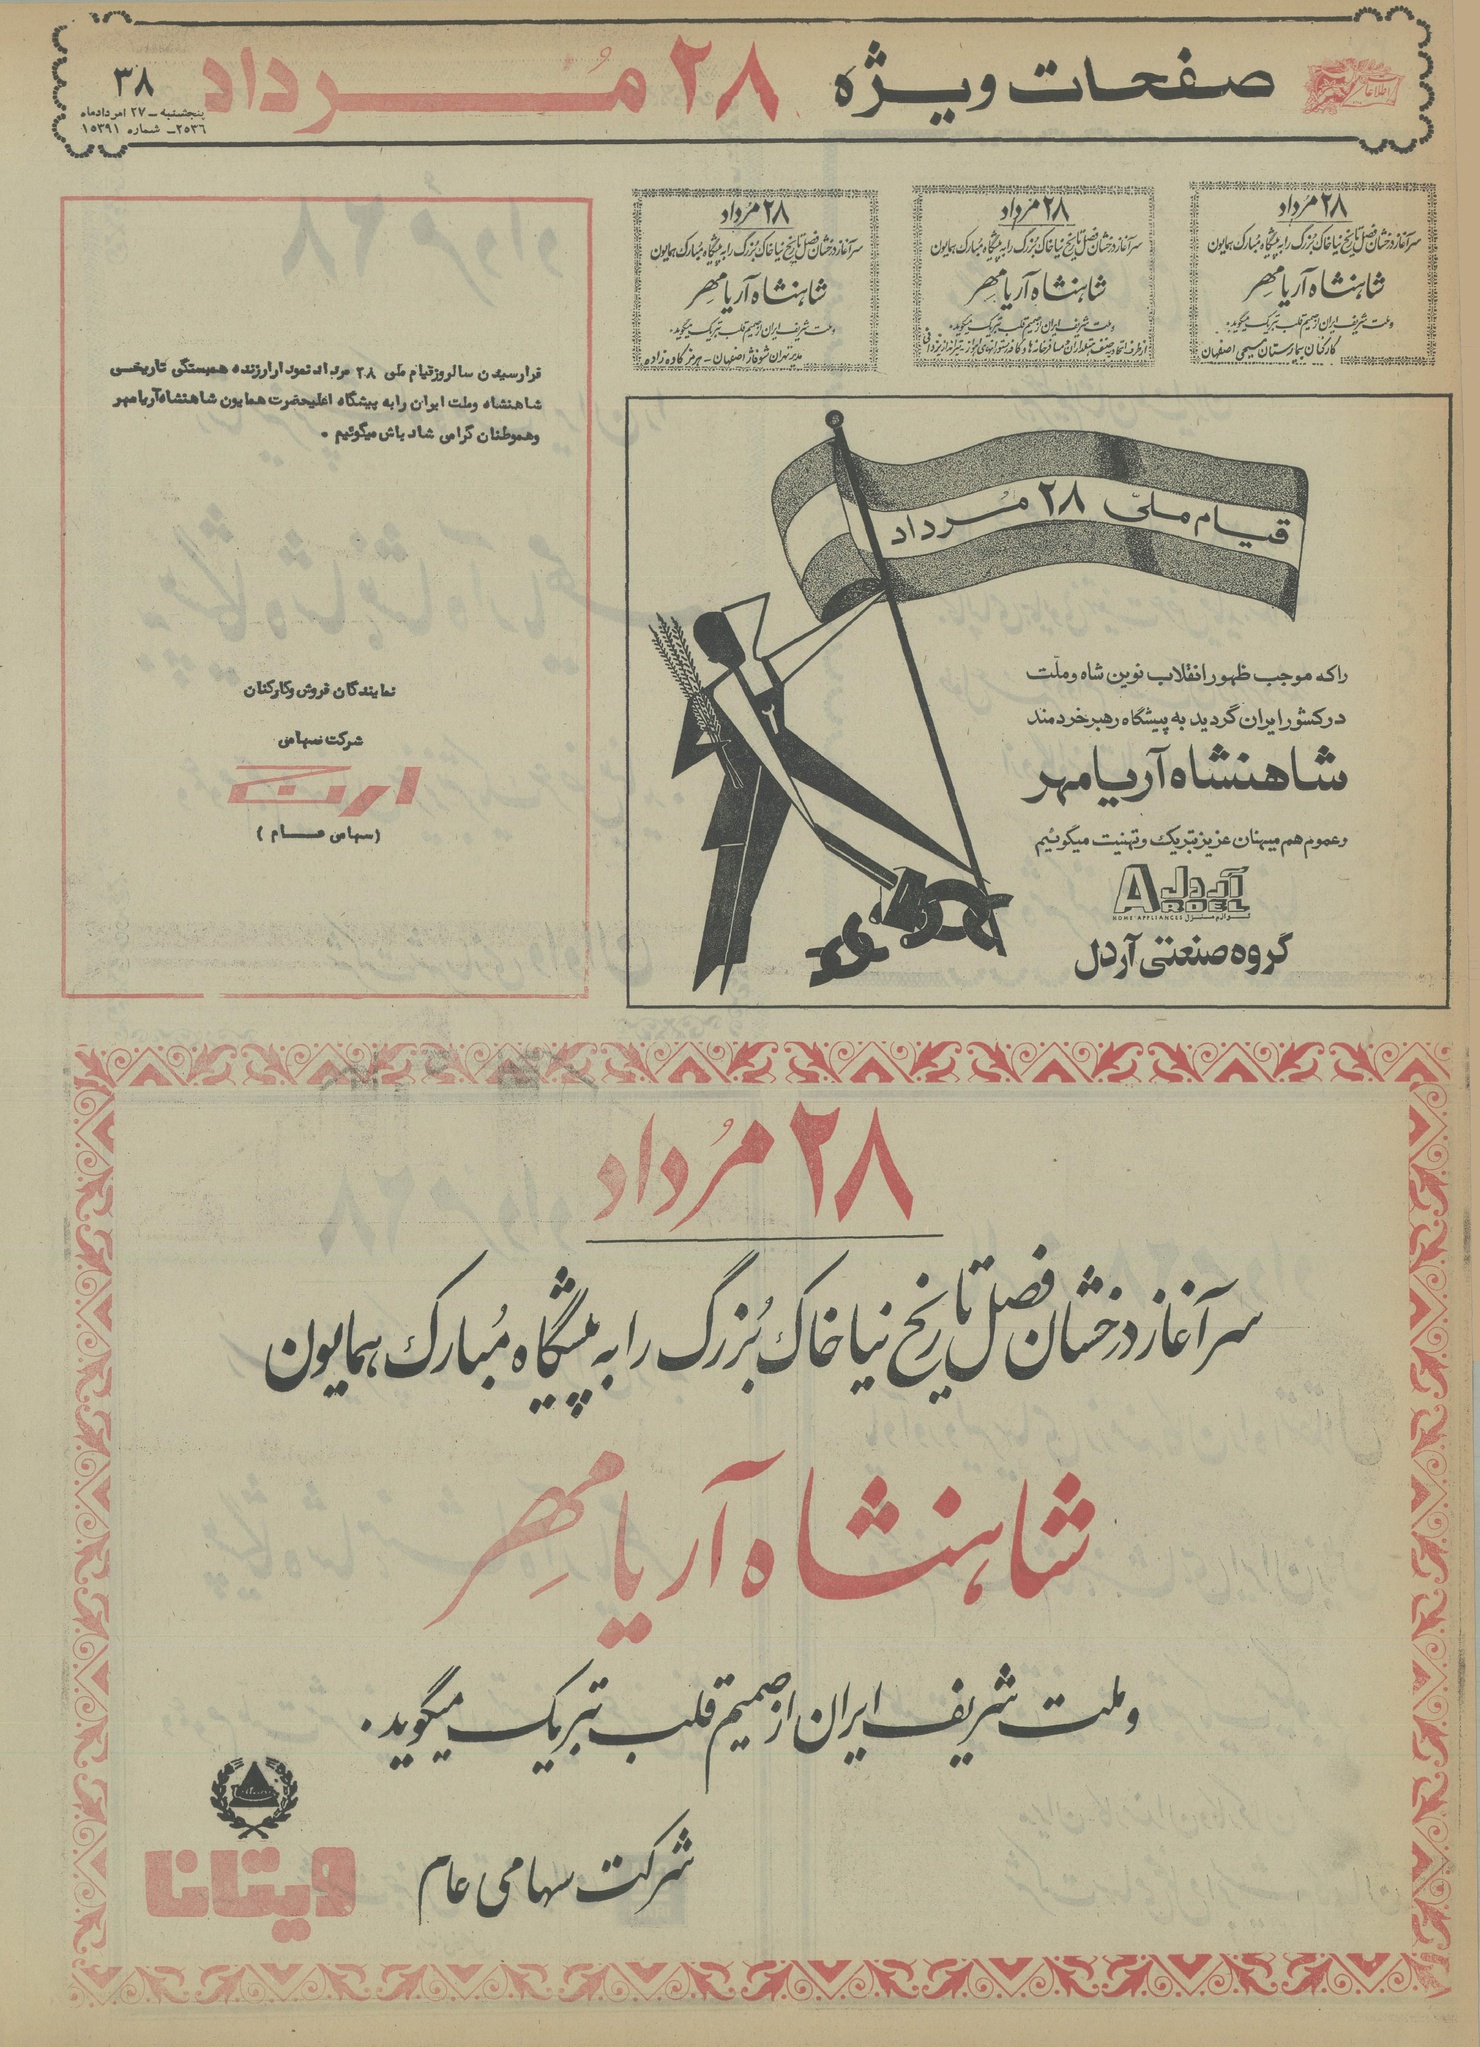 صفحات ویژه ۲۸ مُرداد
۳۸
پنجشنبه – ۲۷ امردادماه
۲۵۳۶ – شماره ۱۵۳۹۱
۲۸ مُرداد
سرآغاز درخشان فصل تاریخ نیاخاک بزرگ را به پیشگاه مبارک همایون
شاهنشاه آریامهر
و ملت شریف ایران از صمیم قلب تبریک میگوید.
کارکنان بیمارستان مسیحی اصفهان
۲۸ مُرداد
سرآغاز درخشان فصل تاریخ نیاخاک بزرگ را به پیشگاه مبارک همایون
شاهنشاه آریامهر
و ملت شریف ایران از صمیم قلب تبریک میگوید.
۲۸ مُرداد
سرآغاز درخشان فصل تاریخ نیاخاک بزرگ را به پیشگاه مبارک همایون
شاهنشاه آریامهر
و ملت شریف ایران از صمیم قلب تبریک میگوید.
مدیر تهران شوفاژ اصفهان – هرمز کاده زاده
قیام ملّی ۲۸ مُرداد
را که موجب ظهور انقلاب نوین شاه و ملّت
در کشور ایران گردید به پیشگاه رهبر خردمند
شاهنشاه آریامهر
و عموم هم میهنان عزیز تبریک و تهنیت میگوئیم
آردل
AROEL
HOME APPLIANCES لوازم منزل
گروه صنعتی آردل
فرارسیدن سالروز قیام ملی ۲۸ مرداد نمودار ارزنده همبستگی تاریخی
شاهنشاه وملت ایران رابه پیشگاه اعلیحضرت همایون شاهنشاه آریامهر
وهموطنان گرامی شادباش میگوئیم .
نمایندگان فروش وکارکنان
شرکت سهامی
ارج
(سهامی عام)
۲۸ مُرداد
سرآغاز درخشان فصل تاریخ نیاخاک بُزرگ را به پیشگاه مُبارک همایون
شاهنشاه آریامهِر
و ملت شریف ایران از صمیم قلب تبریک میگوید.
شرکت سهامی عام
ویتانا